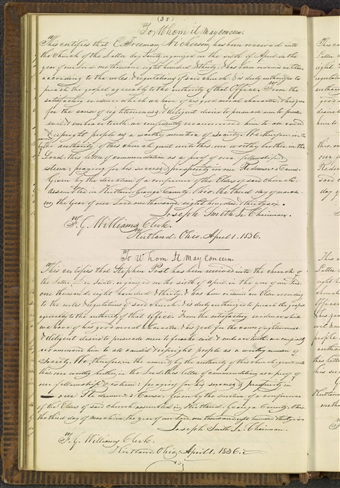 To Whom it May Concern.
This certifies that has been received into
the Church of the Latter day Saints, organized on the sixth of April in the
year of our Lord one thousand, eight hundred & thirty, & has been ordained an Elder
according to the rules & regulations of said church, & is duly authorized to
preach the gospel agreeably to the authority of that Office. From the
satisfactory evidence which we have of his good moral character, & his zeal
for the cause of righteousness, & diligent desire to persuade men to forsake
evil & embrace truth, we confidently recommend him to all candid
& upright people as a worthy member of society. We therefore, in the
name, & by the authority of this church, grant unto this, our worthy brother in the
Lord, this letter of commendation as a proof of our fellowship &
esteem: praying for his success & prosperity in our Redeemer's cause.
Given by the direction of a conference of the Elders of said church
assembled in Kirtland, Geauga County, Ohio, the third day of March
in the year of our Lord one thousand, eight hundred, & thirty six.
Joseph Smith Jr. Chairman.
F. G. Williams Clerk.
Kirtland, Ohio, April 1. 1836.
To Whom It May Concern.
This certifies that Stephen Post has been received into the church of
the Latter day Saints, organized on the sixth of April in the year of our Lord
one thousand, eight hundred & thirty, & has been ordained an Elder according
to the rules & regulations of said church, & is duly authorized to preach the gospel
agreeably to the authority of that office. From the satisfactory evidence which
we have of his good moral character, & his zeal for the cause of righteousness
& diligent desire to persuade men to forsake evil & embrace truth, we confidently
recommend him to all candid & upright people as a worthy member of
society. We, therefore, in the name, & by the authority of this church, grant unto
this, our worthy brother in the Lord, this letter of commendation as a proof of
our fellowship & esteem: praying for his success & prosperity in
our Redeemer's Cause. Given by the direction of a conference
of the Elders of said church assembled in Kirtland, Geauga County, Ohio,
the third day of March in the year of our Lord one thousand eight hundred thirty six.
Joseph Smith Jr. Chairman.
F. G. Williams Clerk.
Kirtland, Ohio, April 1. 1836.